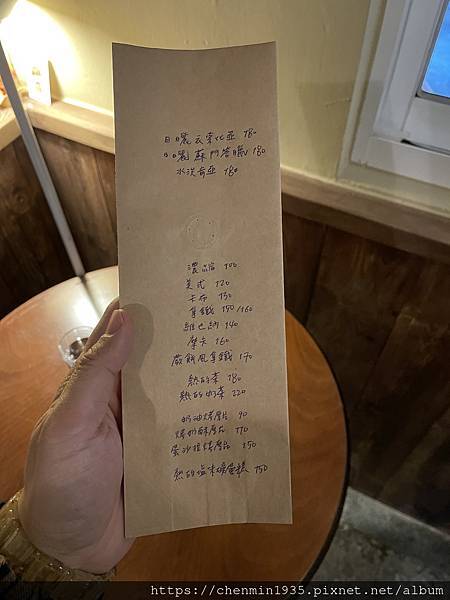 日曬衣索比亞 180
日曬蘇門答臘 180
水洗肯亞 180
濃縮 100
美式 120
卡布 150
拿鐵 150/160
維也納 140
摩卡 160
拿鐵 170
熱的茶 180
熱的奶茶 220
奶油烤厚片 90
烤奶酥厚片 110
蛋沙拉烤厚片 150
熱的鹽味磅蛋糕 150
https://chenmin1935.pixnet.net/album